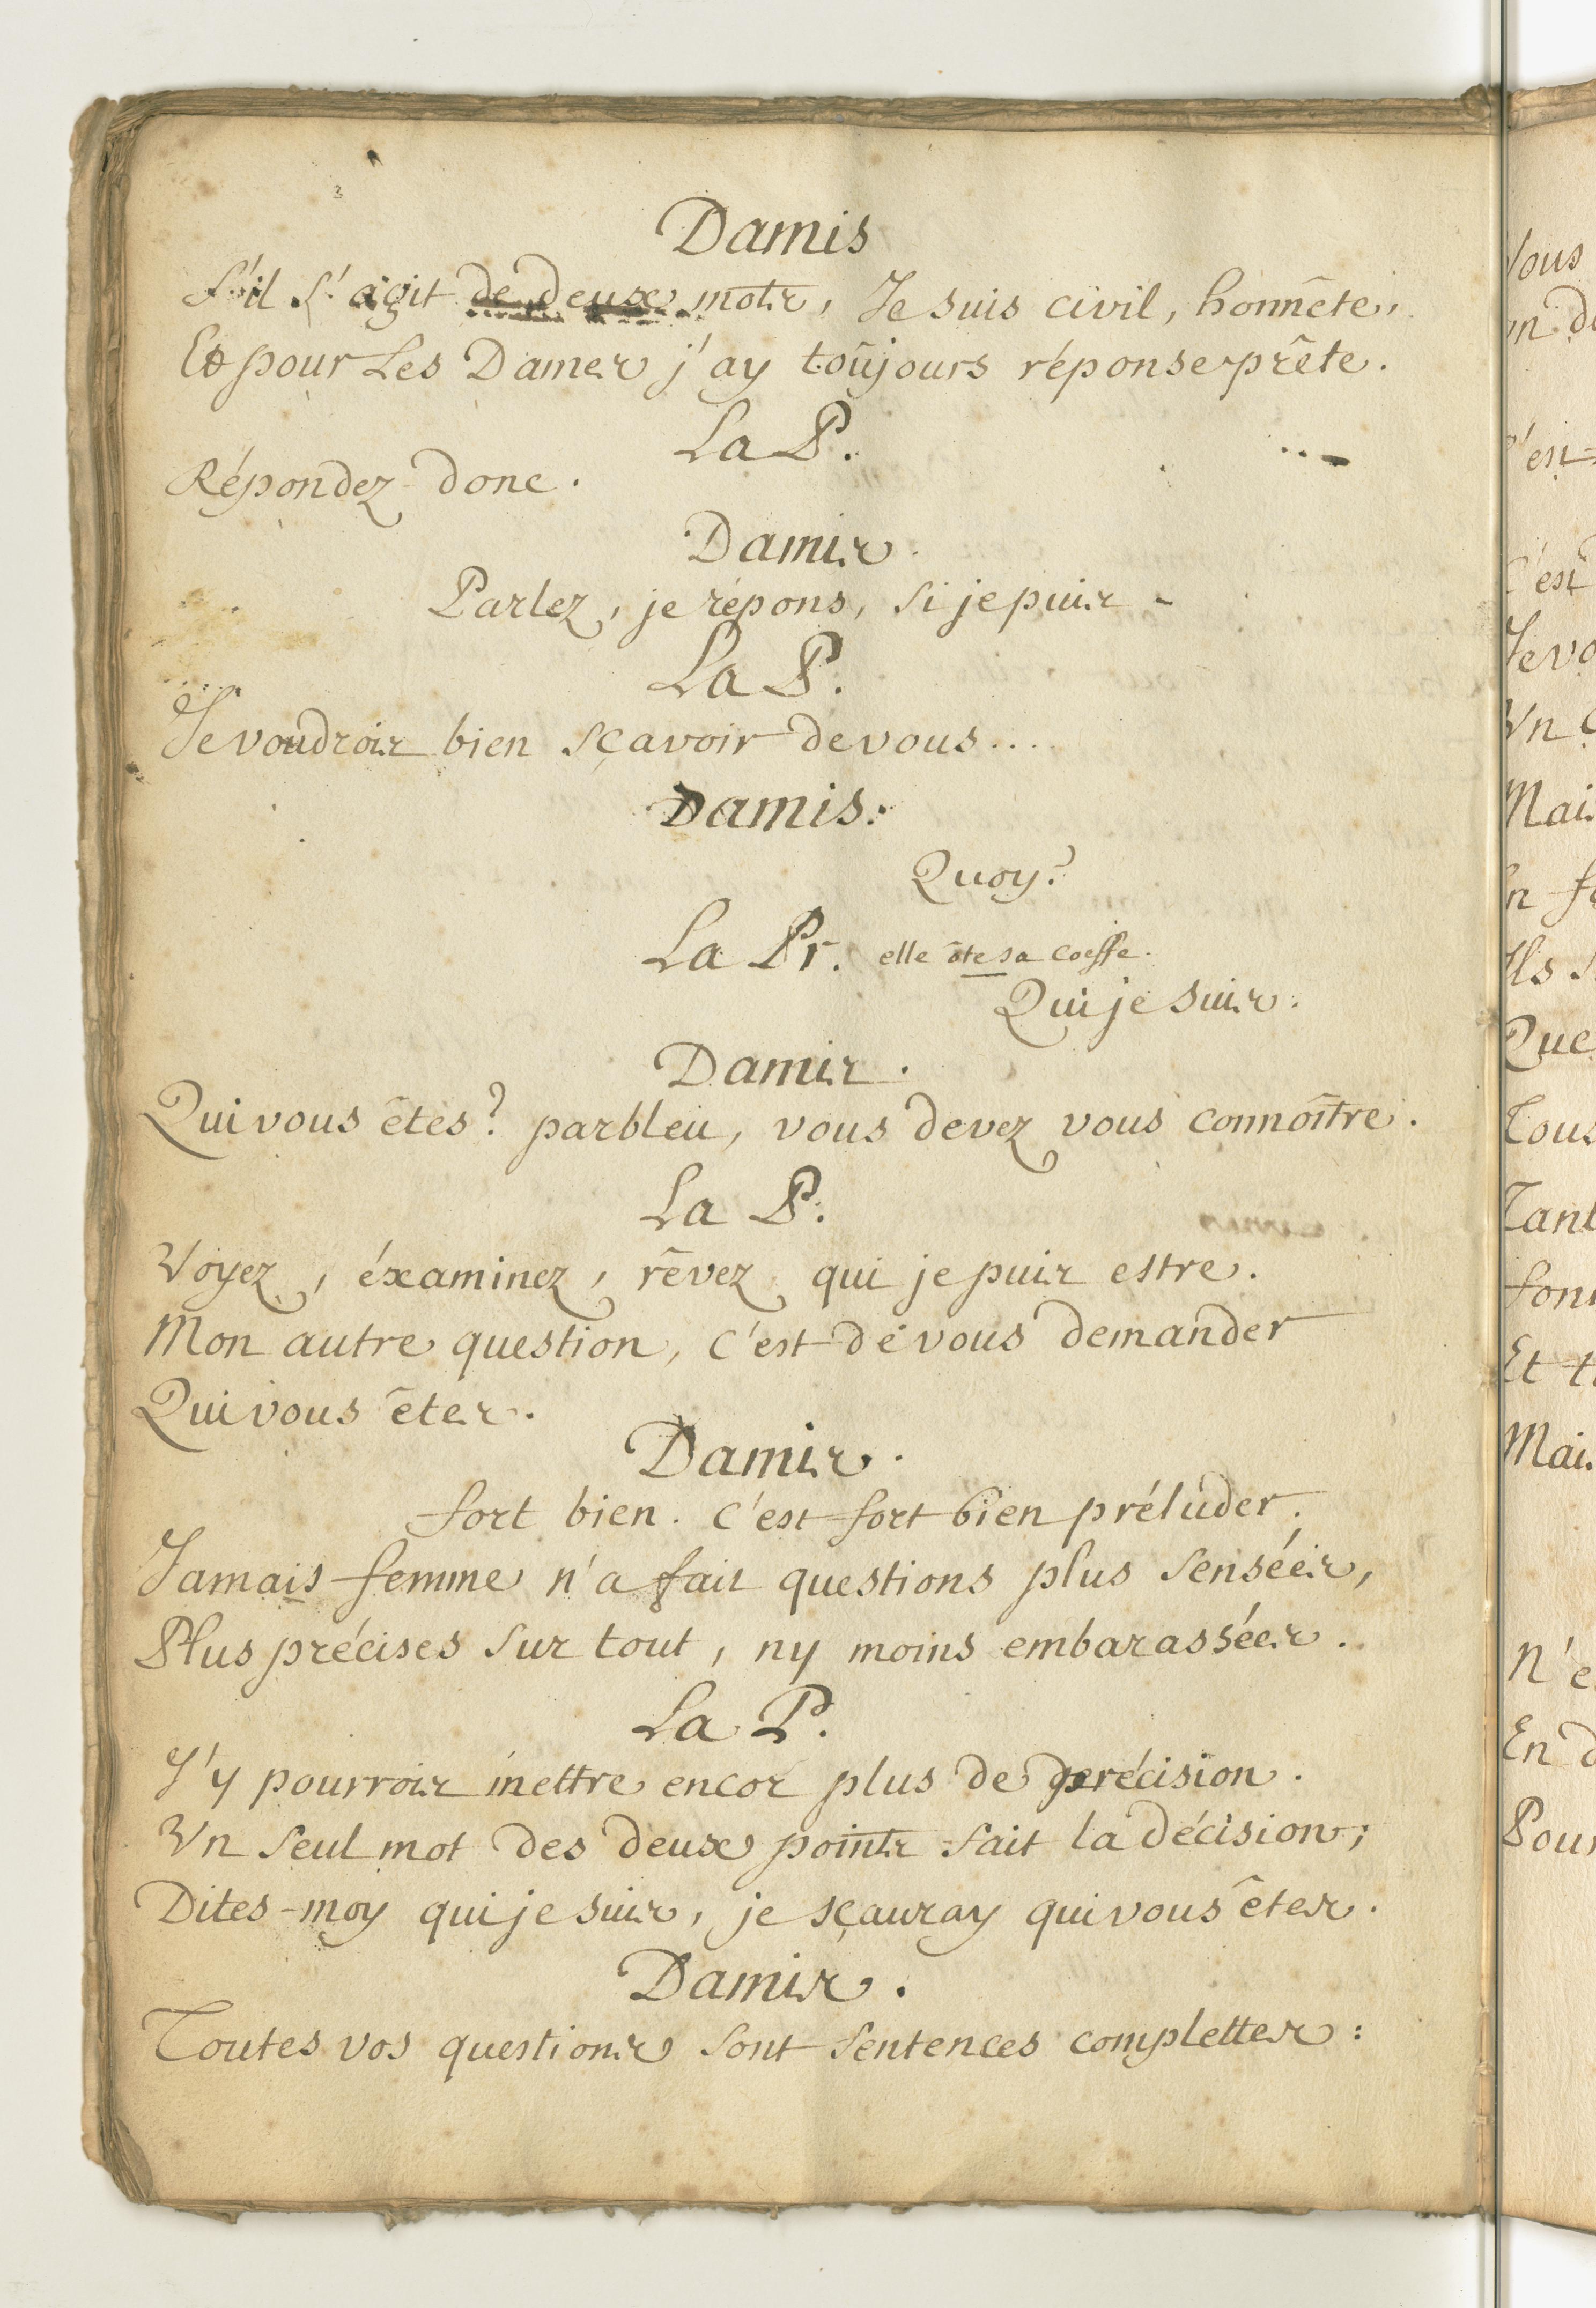 Damis
S'il s'agit de deux mots, Je suis civil, honnête,
Et pour Les Dames j'ay toûjours réponse prête.
La P.
Répondez donc.
Damis.
Parlez, je répons, si je puis -
La P.
Je voudrois bien sçavoir de vous...
Damis.
Quoy?
La Pr. elle ôte sa coeffe.
Qui je suis.
Damis.
Qui vous êtes? parbleu, vous devez vous connoître.
La P.
Voyez, éxaminez, rêvez qui je puis estre.
Mon autre question, c'est de vous demander
Qui vous êtes.
Damis.
fort bien. c'est fort bien préluder.
Jamais femme n'a fait questions plus sensées,
Plus précises sur tout, ny moins embarassées.
La P.
J'y pourrois mettre encor plus de précision.
Un seul mot des deux points fait la décision;
Dites-moy qui je suis, je sçauray qui vous êtes.
Damis.
Toutes vos questions sont sentences complettes: